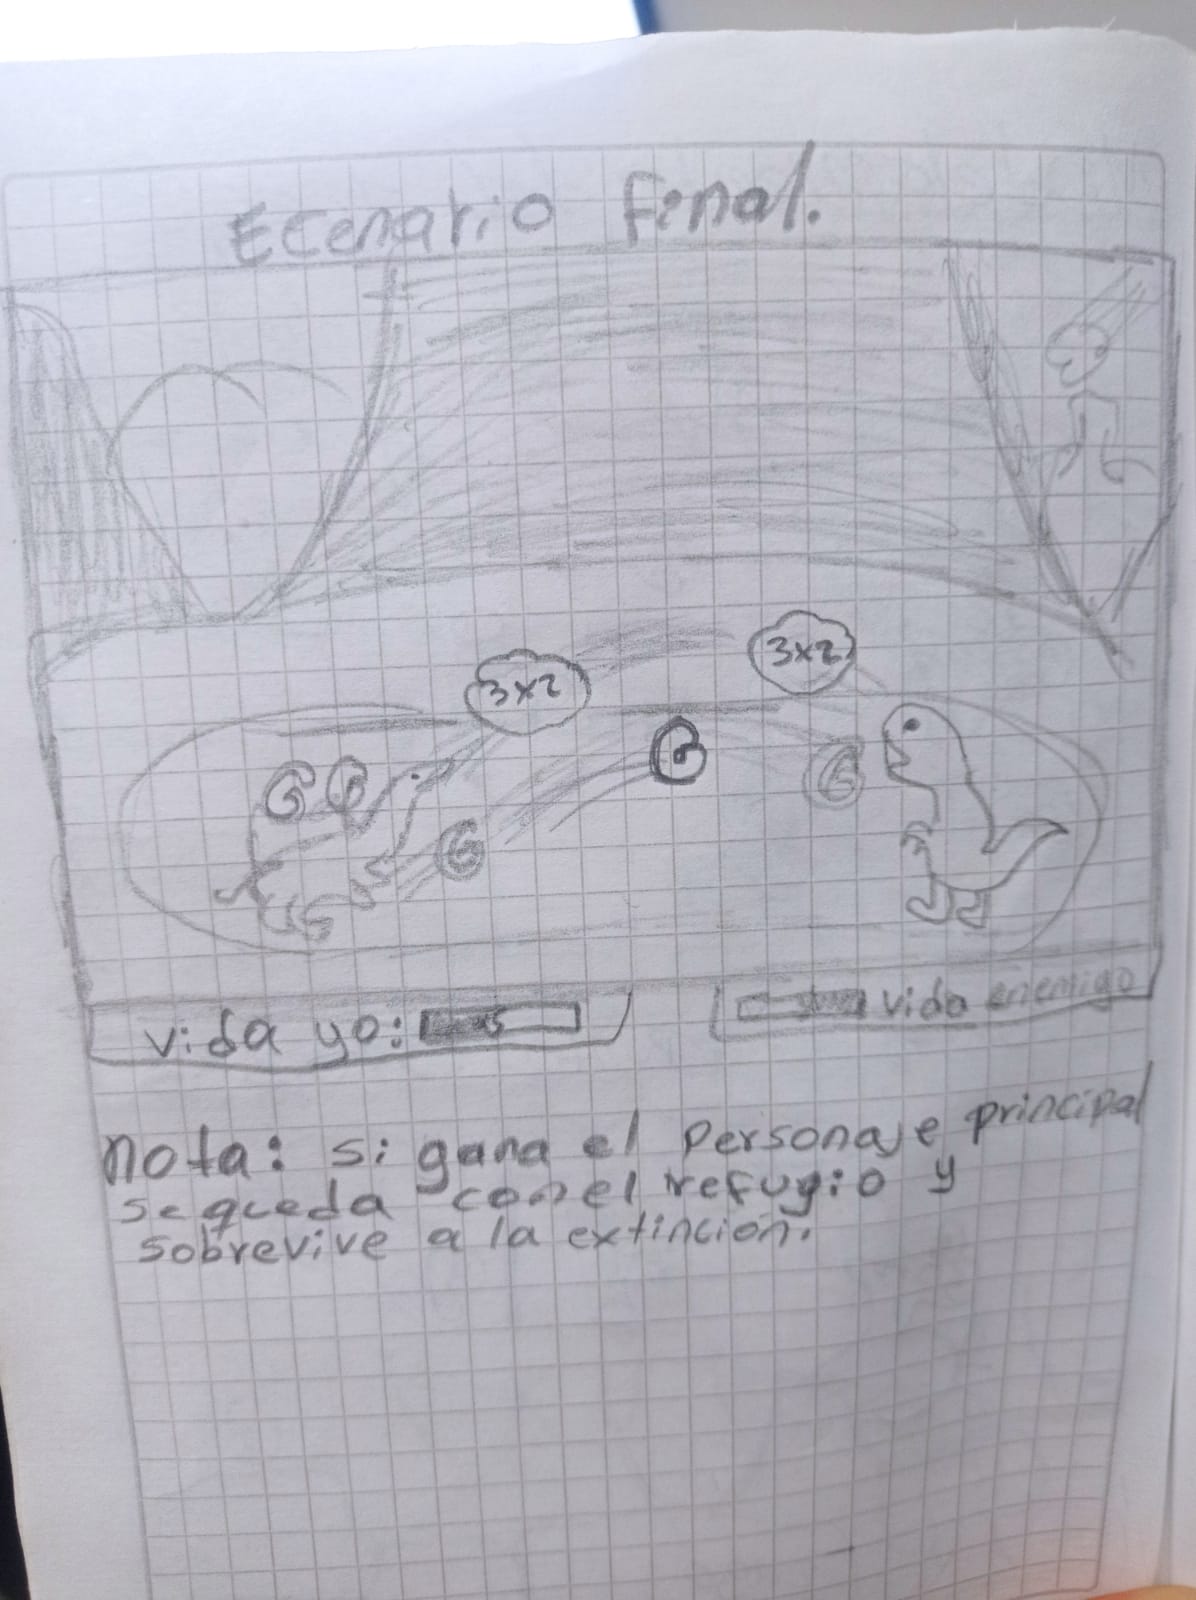 Ecenario Final.
3x2
3x2
6 6
6
6
6
vida yo:
vida enemigo
nota: si gana el personaje principal
se queda con el refugio y
sobrevive a la extinción.